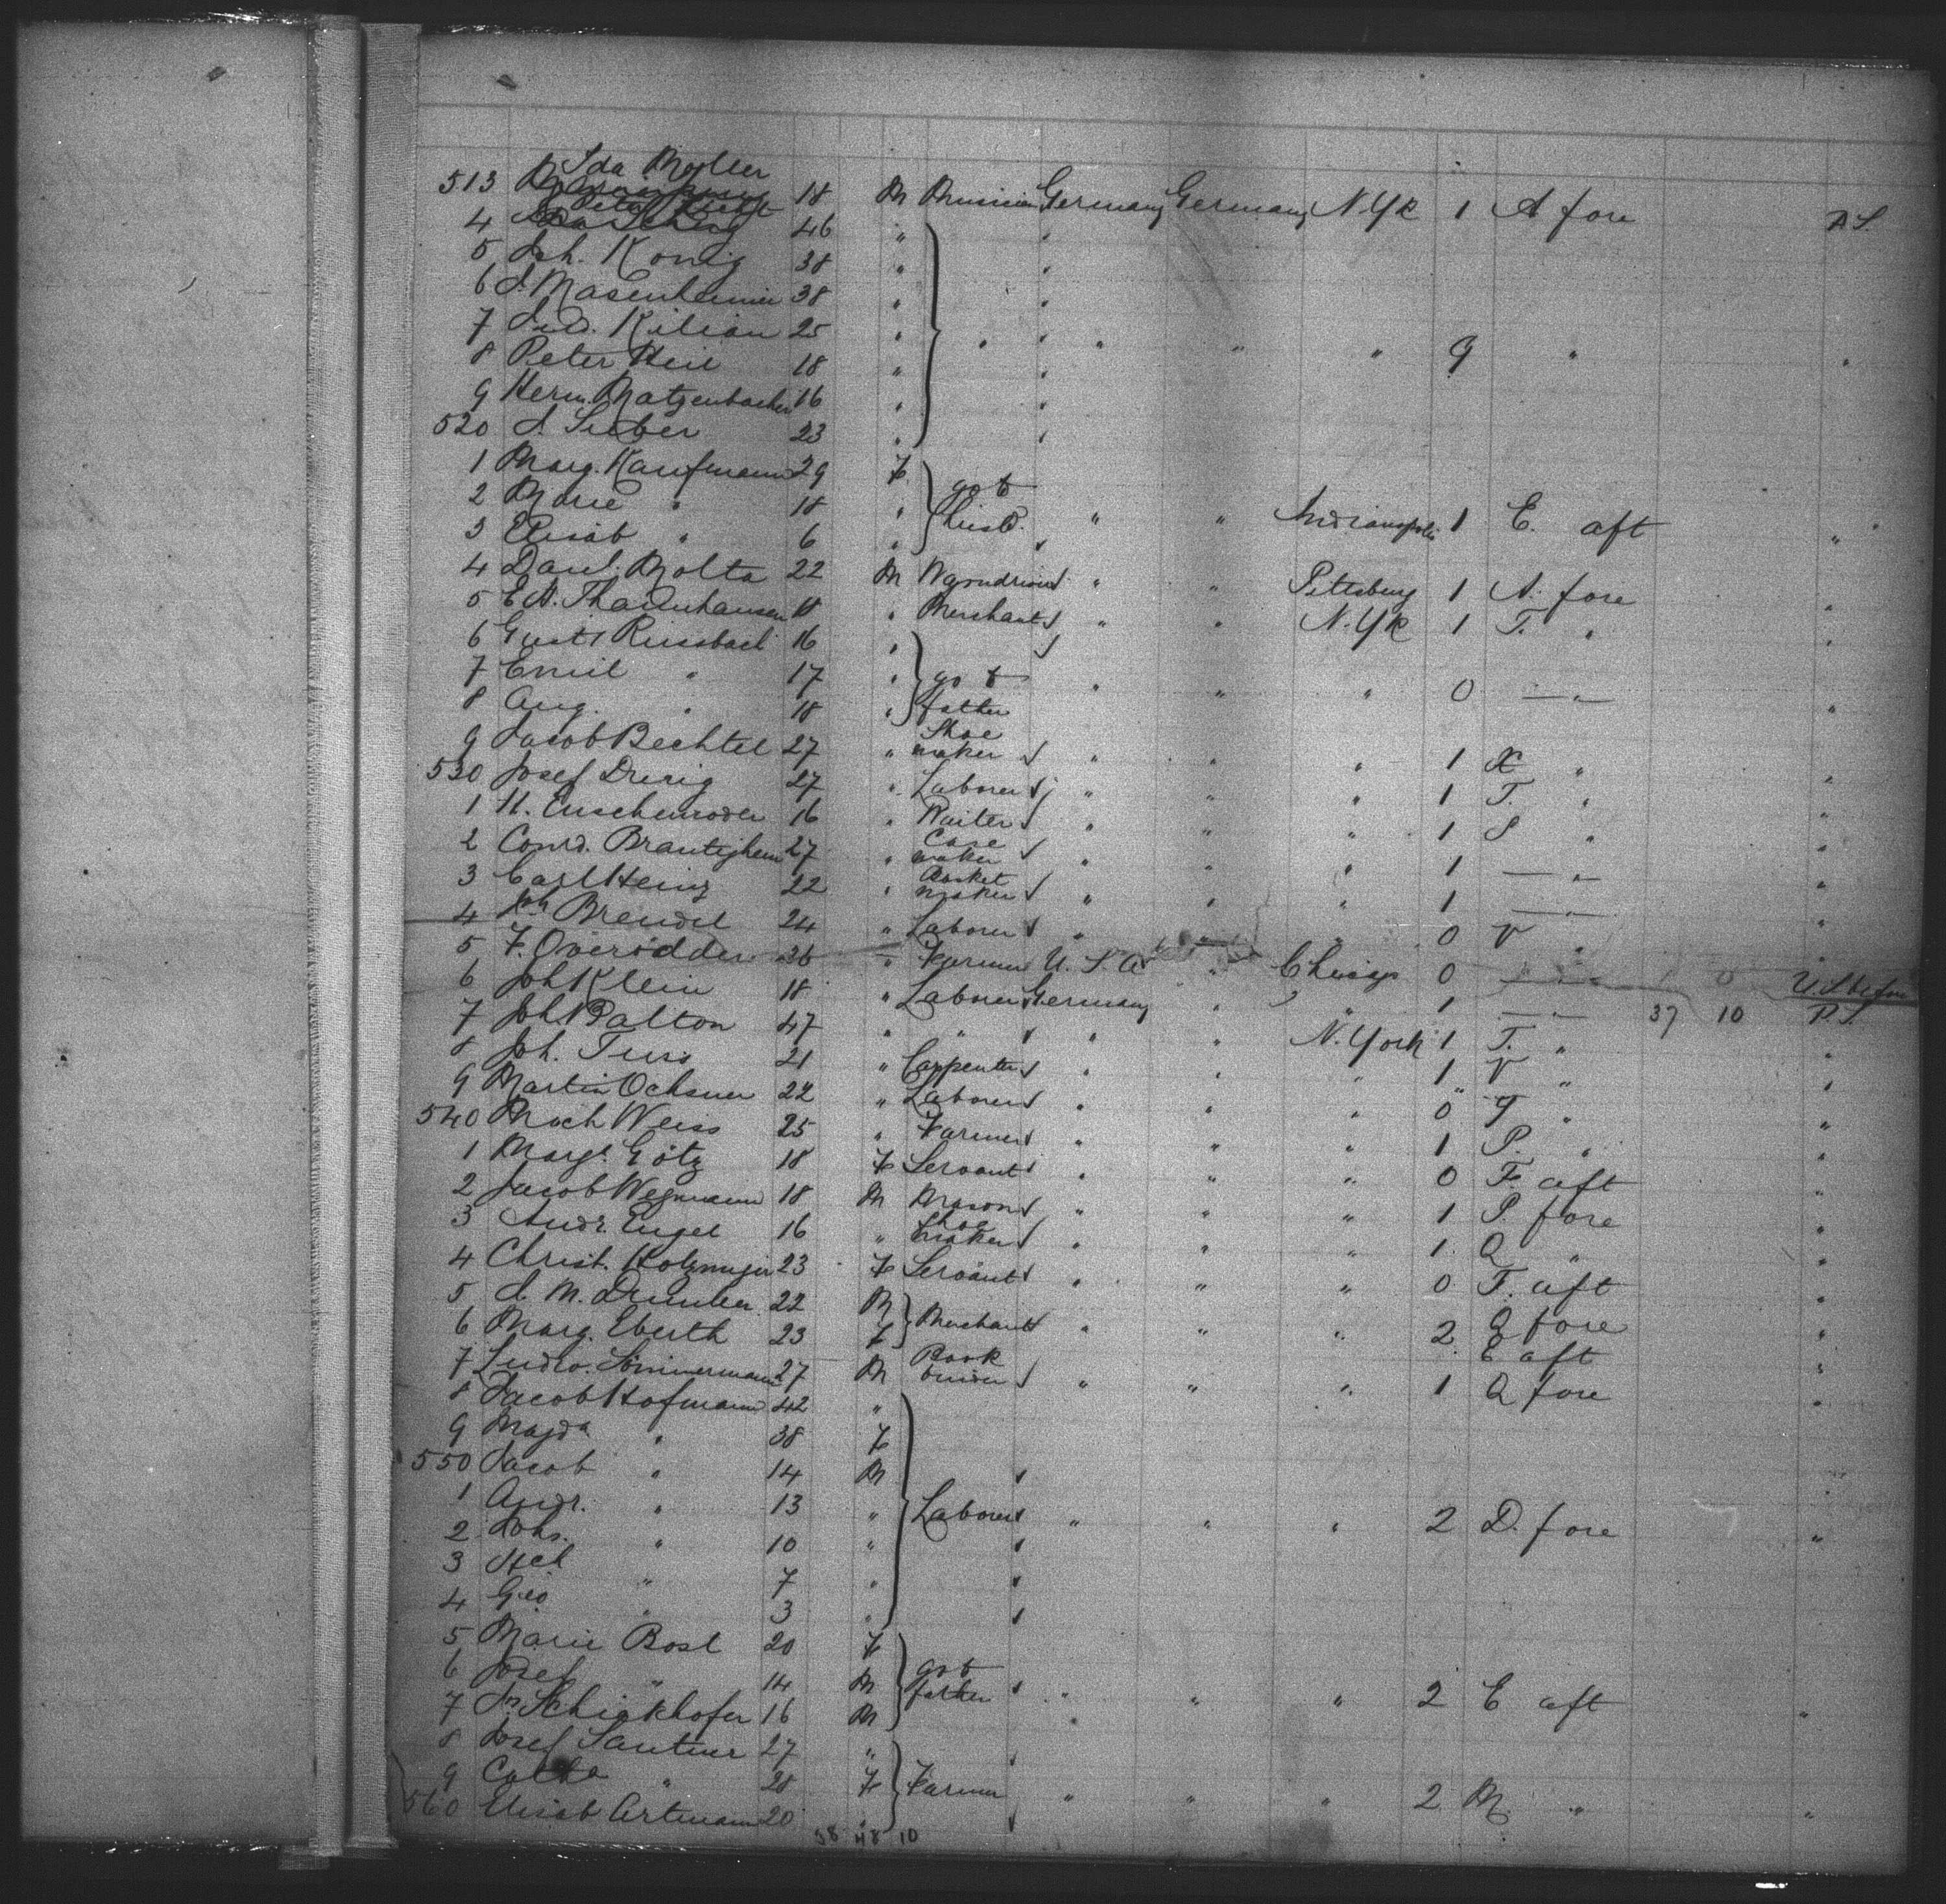 Ida Moller
513 18 M Musician Germany Germany N.Yk 1 A fore P.S.
4 46 "
5 Joh. König 38 "
6 J. Masenheimer 38 "
7 Lud. Kilian 25 " " " " " 9 " "
8 Peter Heil 18 "
9 Herm. Matzenbacher 16 "
520 J. Sieber 23 "
1 Marg. Kaufmann 29 F go to
2 Marie " 18 " husb. " " Indianapolis 1 E. aft "
3 Elisab " 6 "
4 Danl. Molta 22 M " " Pittsburg 1 A. fore "
5 E.A. Thalenhausen 18 " Merchant " " N.Yk 1 T. " "
6 Gust. Reissbach 16 "
7 Emil " 17 " go to " " " 0 — " "
8 Aug. " 18 " father
9 Jacob Bechtel 27 " Shoe maker " " " 1 X " "
530 Josef Drurig 27 " Laborer " " " 1 T. " "
1 H. Enschenroder 16 " Waiter " " " 1 S " "
2 Conrd. Brautigheim 27 " Case maker " " " 1 — " "
3 Carl Heinz 22 " Basket maker " " " 1 — " "
4 Joh Brendel 24 " Laborer " " " 0 V " "
5 F. Overidder 36 " Farmer U.S.A " Chicago 0 — " 0 U.S.
6 Joh Klein 18 " Laborer Germany " " 1 — " 37 10 P.S.
7 Joh Balton 47 " " " " N.York 1 T. " "
8 Joh. Turs 21 " Carpenter " " " 1 V " "
9 Martin Ochsner 22 " Laborer " " " 0 T " "
540 Mach Weiss 25 " Farmer " " " 1 P. " "
1 Margt. Götz 18 F Servant " " " 0 F. aft "
2 Jacob Wegmann 18 M Mason " " " 1 P. fore "
3 Andr. Engel 16 " Shoe maker " " " 1 Q " "
4 Christ. Holzmayer 23 F Servant " " " 0 F. aft "
5 J. M. 22 M Merchant " " " 2 Q fore "
6 Marg. Eberth 23 F E aft
7 Ludw. Simmermann 27 M Book binder " " " 1 Q fore "
8 Jacob Hofmann 42 "
9 Magda " 38 F
550 Jacob " 14 M
1 Andr. " 13 " Laborer " " " 2 D. fore "
2 Johs. " 10 "
3 Hch " 7 "
4 Geo " 3 "
5 Marie Bosl 20 F
6 Josef " 14 M go to father " " " 2 E aft "
7 Schickhofer 16 M
8 Josef Santner 27 "
9 Catha " 28 F Farmer " " " 2 M. " "
560 Elisab Artmann 20 "
58 48 10